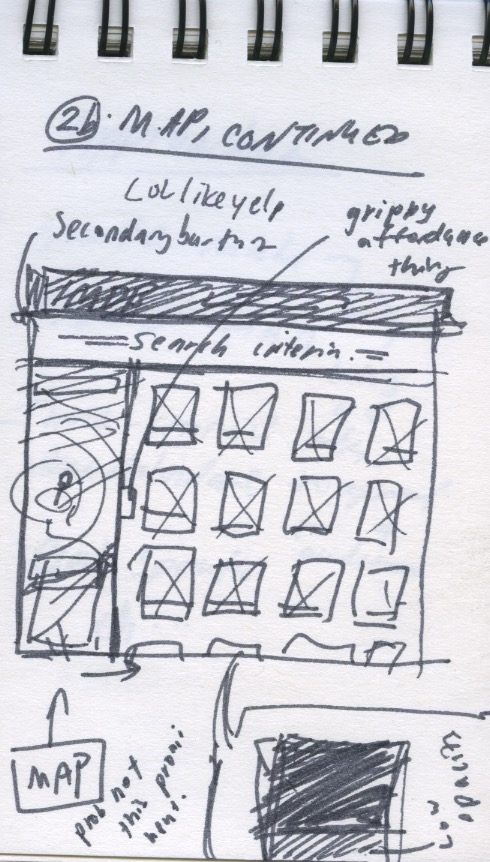 2b. MAP, CONTINUED
LOL like yelp
Secondary button
grippy
affordance
thing
Search criteria.
MAP
prob not
this promi
nent.